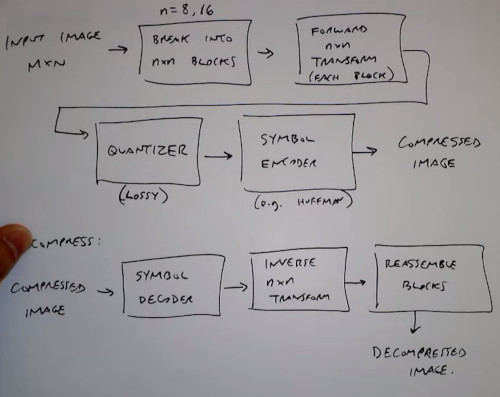 n=8,16
INPUT IMAGE
M×N
BREAK INTO
n×n BLOCKS
FORWARD
n×n
TRANSFORM
(EACH BLOCK)
QUANTIZER
(LOSSY)
SYMBOL
ENCODER
(e.g. HUFFMAN)
COMPRESSED
IMAGE
COMPRESS:
COMPRESSED
IMAGE
SYMBOL
DECODER
INVERSE
n×n
TRANSFORM
REASSEMBLE
BLOCKS
DECOMPRESSED
IMAGE.